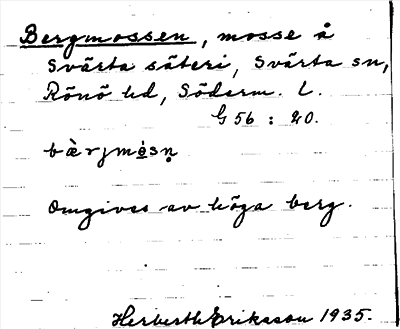 Bergmossen, mosse å
Svärta säteri, Svärta sn,
Rönö hd, Söderm. l.
G 56 : 20.
bæ̀rjmósn̥
Omgives av höga berg.
Herbert Eriksson 1935.